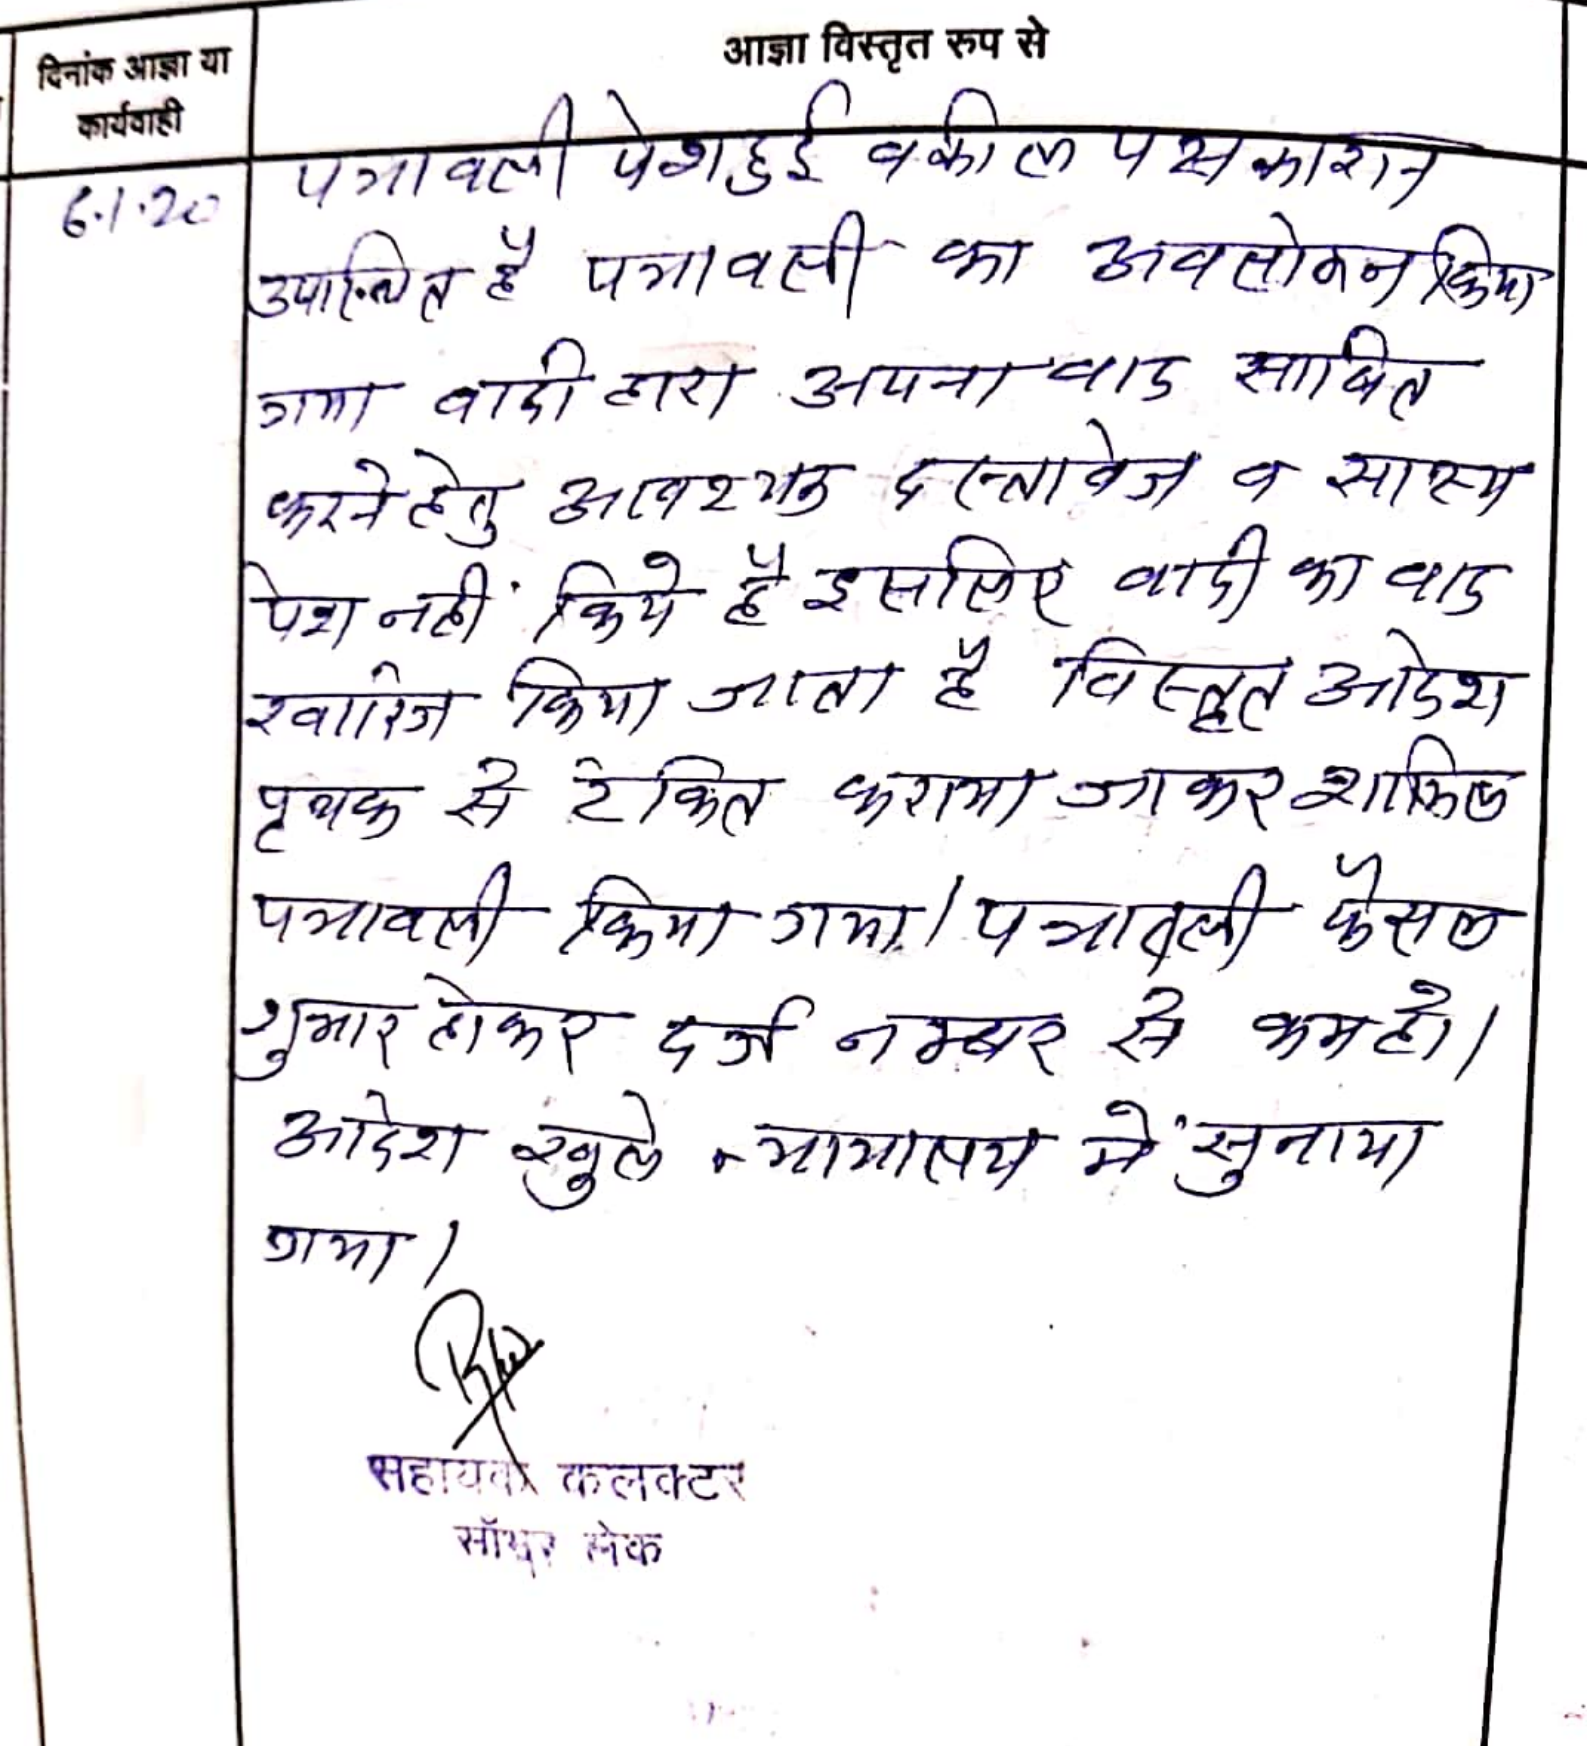 दिनांक आज्ञा या
कार्यवाही
आज्ञा विस्तृत रुप से
6.1.20
पत्रावली पेश हुई वकील पक्षकारान
उपस्थित है पत्रावली का अवलोकन किया
गया वादी द्वारा अपना वाद साबित
करने हेतु आवश्यक दस्तावेज व साक्ष्य
पेश नहीं किये है इसलिए वादी का वाद
खारिज किया जाता है विस्तृत आदेश
पृथक से टंकित कराया जाकर शामिल
पत्रावली किया गया। पत्रावली फैसल
शुमार होकर दर्ज नम्बर से कम हो।
आदेश खुले न्यायालय में सुनाया
गया।
सहायक कलक्टर
सॉभर लेक